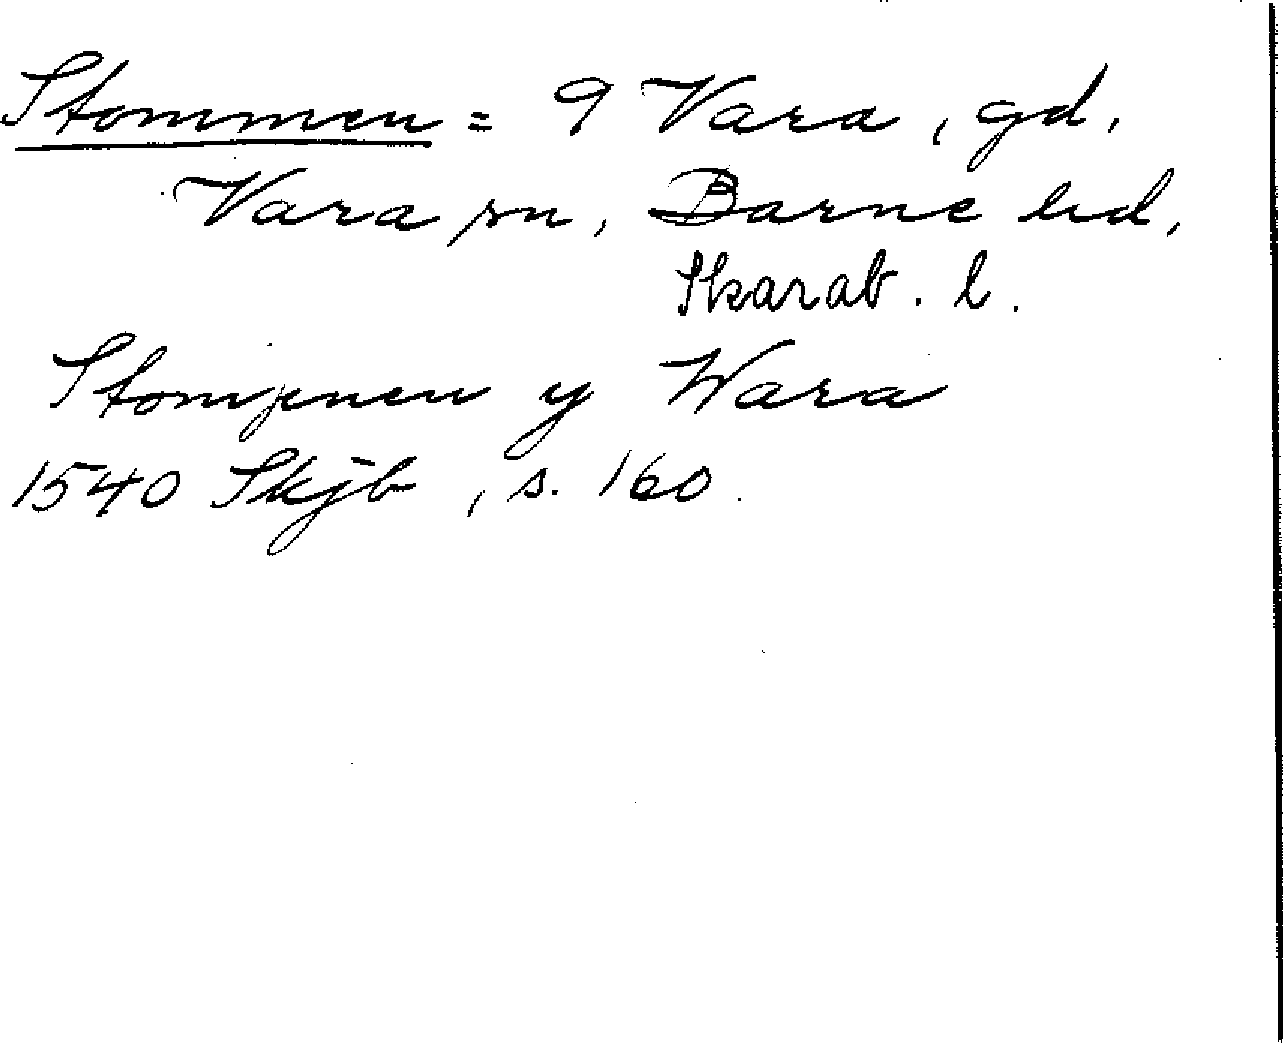 Stommen = 9 Vara, gd,
Vara sn, Barne hd,
Skarab. l.
Stompnen y Wara
1540 Skjb, s. 160.